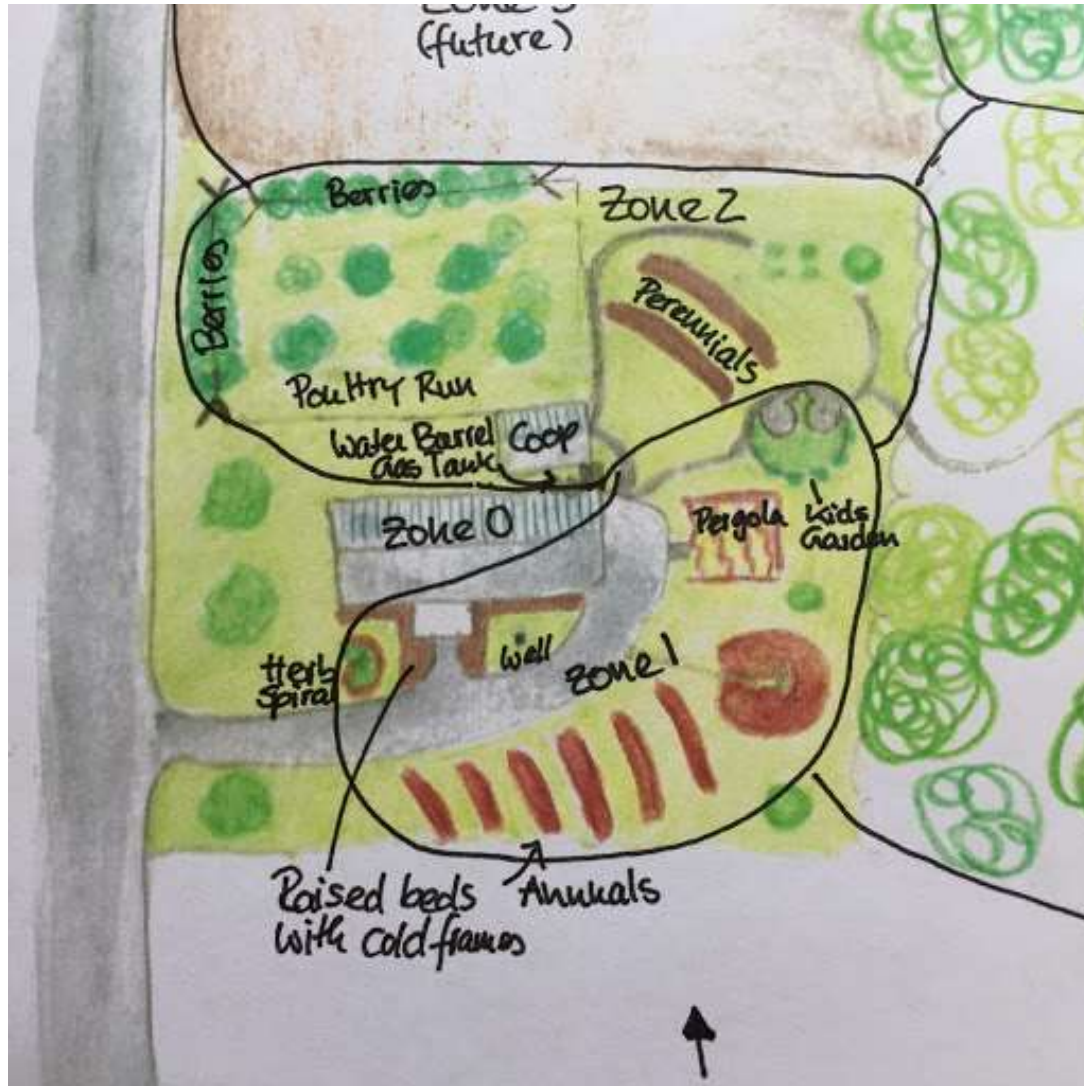 Zone 3
(future)
Berries
Zone 2
Berries
Perennials
Poultry Run
Water Barrel
Gas Tank
Coop
Zone 0
Pergola
Kids
Garden
Herb
Spiral
Well
Zone 1
Raised beds
with cold frames
Annuals